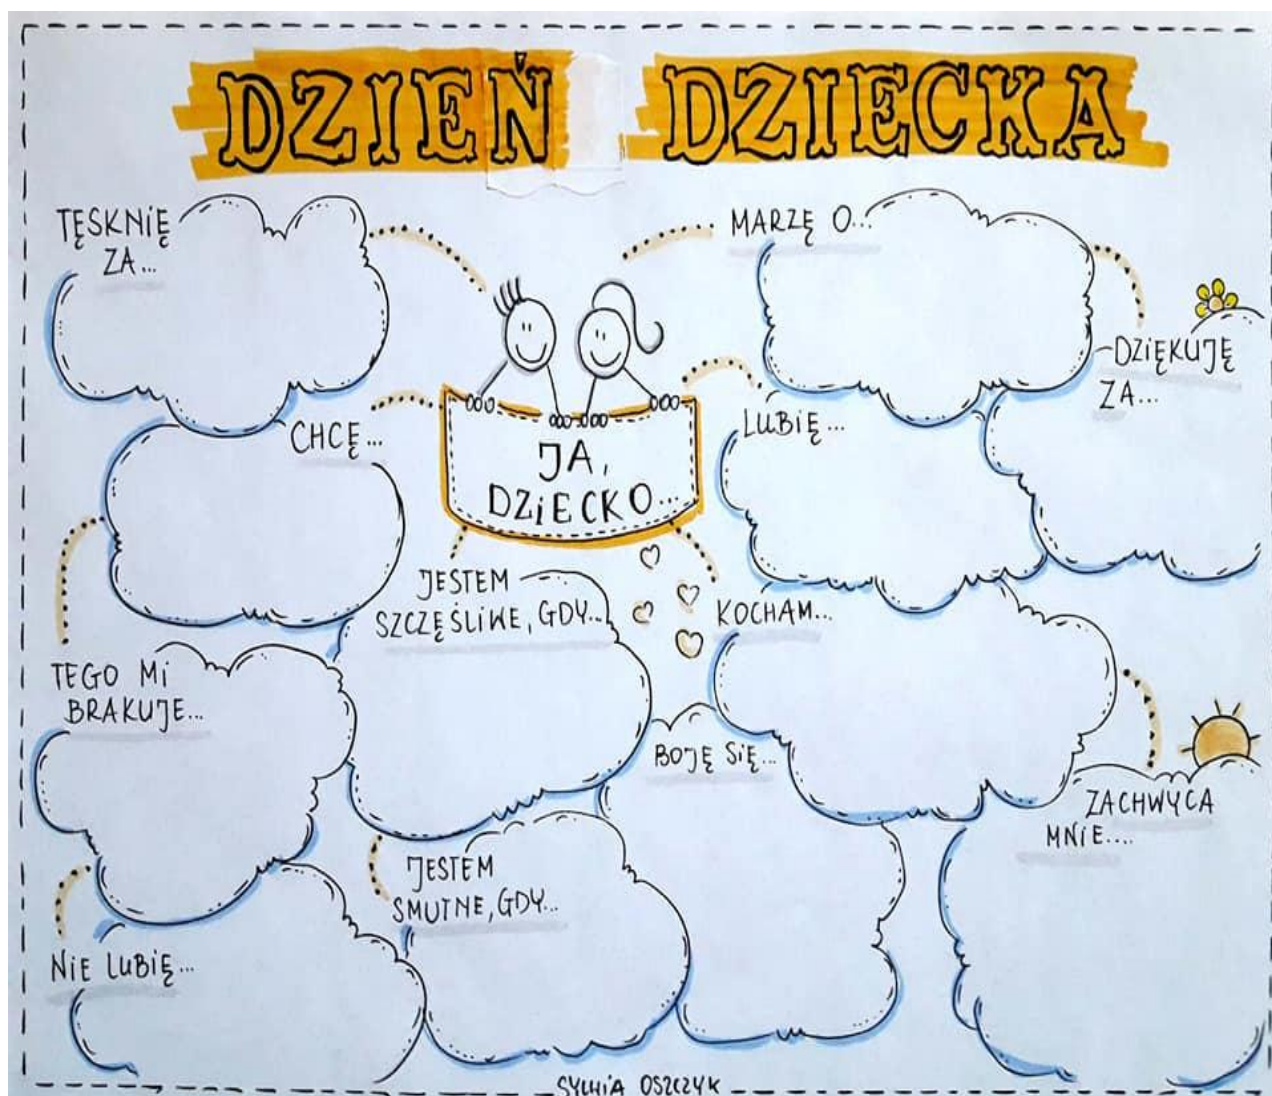 DZIEŃ DZIECKA
TĘSKNIĘ
ZA...
MARZĘ O...
DZIĘKUJĘ
ZA...
CHCĘ...
LUBIĘ...
JA,
DZIECKO...
JESTEM
SZCZĘŚLIWE, GDY...
KOCHAM...
TEGO MI
BRAKUJE...
BOJĘ SIĘ...
ZACHWYCA
MNIE....
JESTEM
SMUTNE, GDY...
NIE LUBIĘ...
SYLWIA OSZCZYK